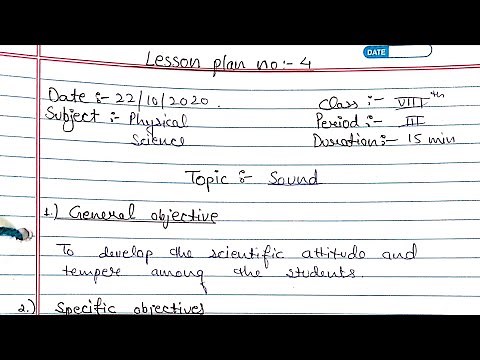 DATE
Lesson plan no:- 4
Date :- 22/10/2020.
Class :- VIIIth
Subject :- Physical Science
Period :- III
Duration:- 15 min
Topic :- Sound
1.) General objective
To develop the scientific attitude and
tempere among the students.
2.) Specific objectives